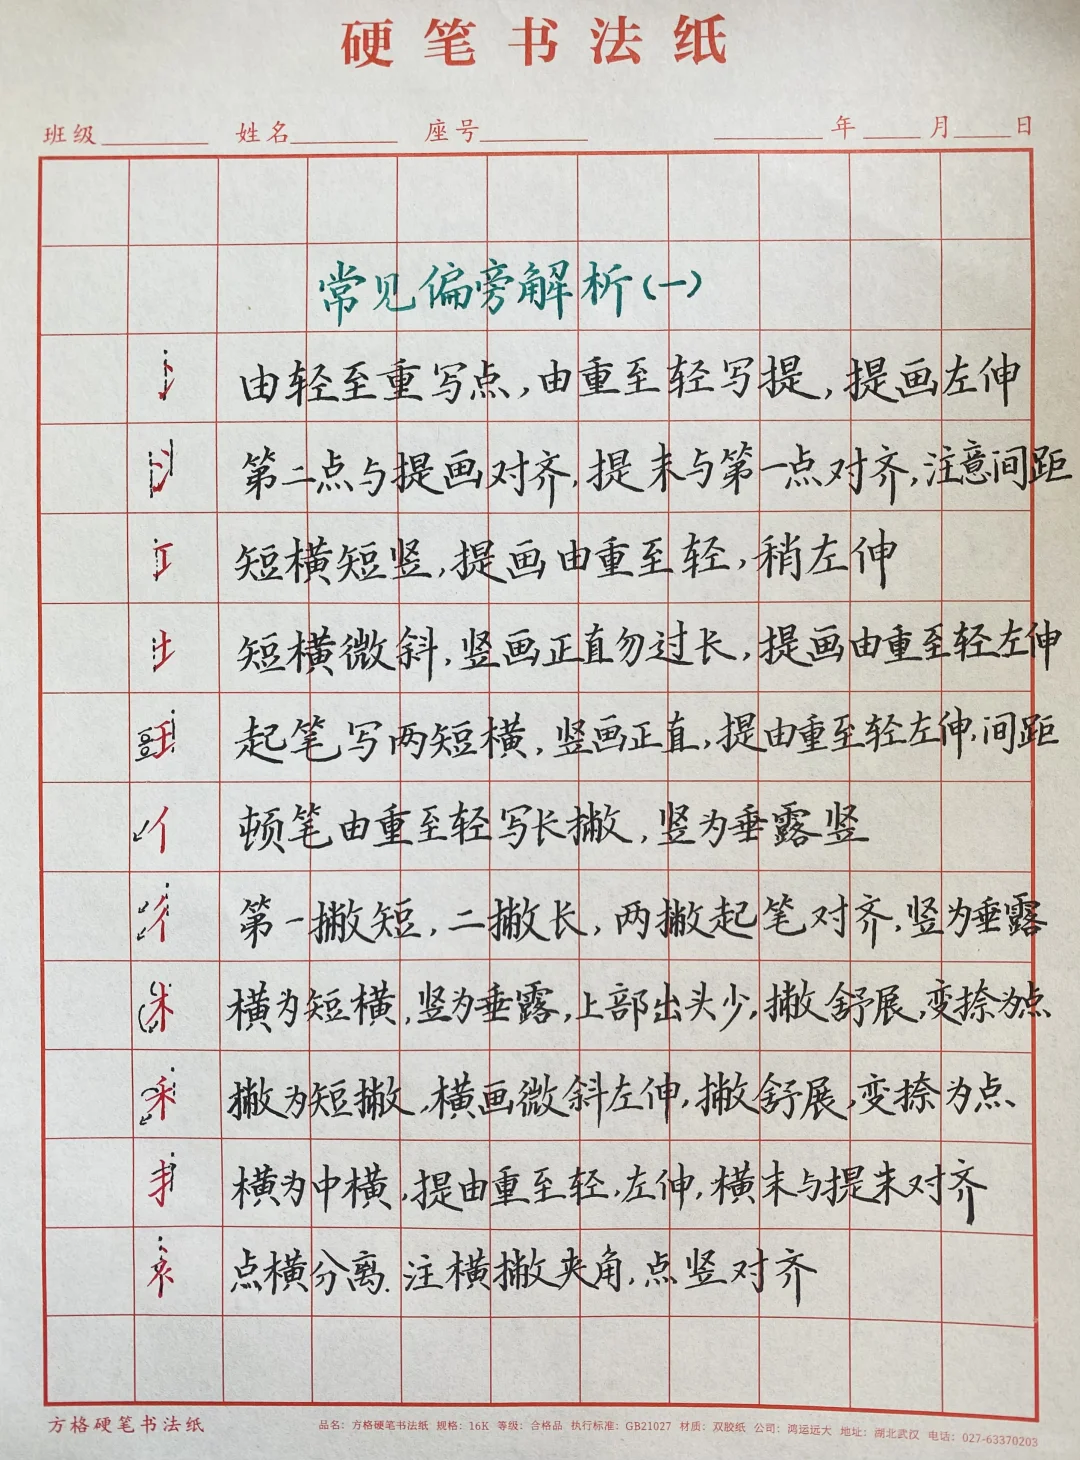 硬笔书法纸
班级 姓名 座号 年 月 日
常见偏旁解析(一)
冫 由轻至重写点,由重至轻写提,提画左伸
氵 第二点与提画对齐,提末与第一点对齐,注意间距
工 短横短竖,提画由重至轻,稍左伸
土 短横微斜,竖画正直勿过长,提画由重至轻左伸
王 起笔写两短横,竖画正直,提由重至轻左伸,间距
亻 顿笔由重至轻写长撇,竖为垂露竖
彳 第一撇短,二撇长,两撇起笔对齐,竖为垂露
木 横为短横,竖为垂露,上部出头少,撇舒展,变捺为点
禾 撇为短撇,横画微斜左伸,撇舒展,变捺为点
扌 横为中横,提由重至轻,左伸,横末与提末对齐
衤 点横分离.注横撇夹角,点竖对齐
方格硬笔书法纸 品名:方格硬笔书法纸 规格:16K 等级:合格品 执行标准:GB21027 材质:双胶纸 公司:鸿运远大 地址:湖北武汉 电话:027-63370203